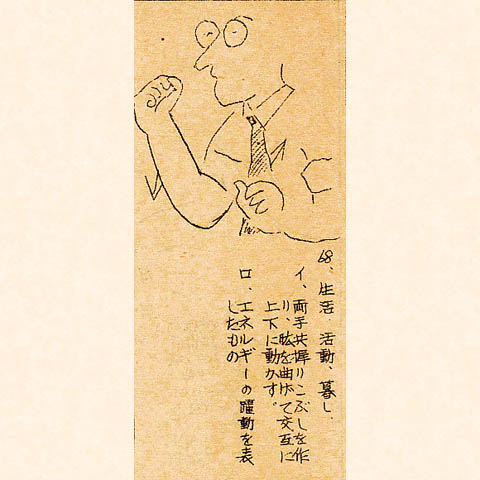 68、生活、活動、暮し、
イ、両手共握りこぶしを作
り、肱を曲げて交互に
上下に動かす。
ロ、エネルギーの躍動を表
したもの